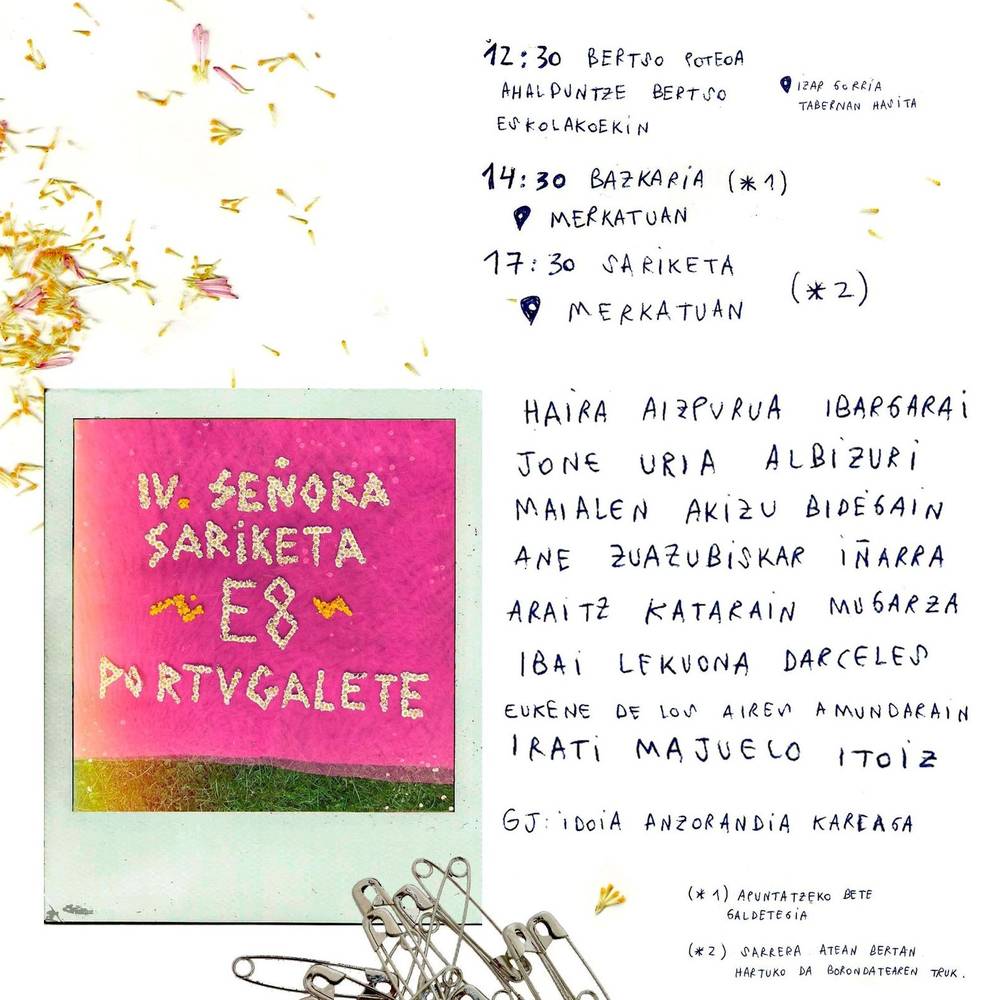 12:30 BERTSO POTEOA
AHALPUNTZE BERTSO
ESKOLAKOEKIN
IZAR GORRIA
TABERNAN HASITA
14:30 BAZKARIA (*1)
MERKATUAN
17:30 SARIKETA
(*2)
MERKATUAN
IV. SEÑORA
SARIKETA
E8
PORTUGALETE
HAIRA AIZPURUA IBARGARAI
JONE URIA ALBIZURI
MAIALEN AKIZU BIDEGAIN
ANE ZUAZUBISKAR IÑARRA
ARAITZ KATARAIN MUGARZA
IBAI LEKUONA DARCELES
EUKENE DE LOS AIRES AMUNDARAIN
IRATI MAJUELO ITOIZ
GJ: IDOIA ANZORANDIA KAREAGA
(*1) APUNTATZEKO BETE
GALDETEGIA
(*2) SARRERA ATEAN BERTAN
HARTUKO DA BORONDATEAREN TRUK.